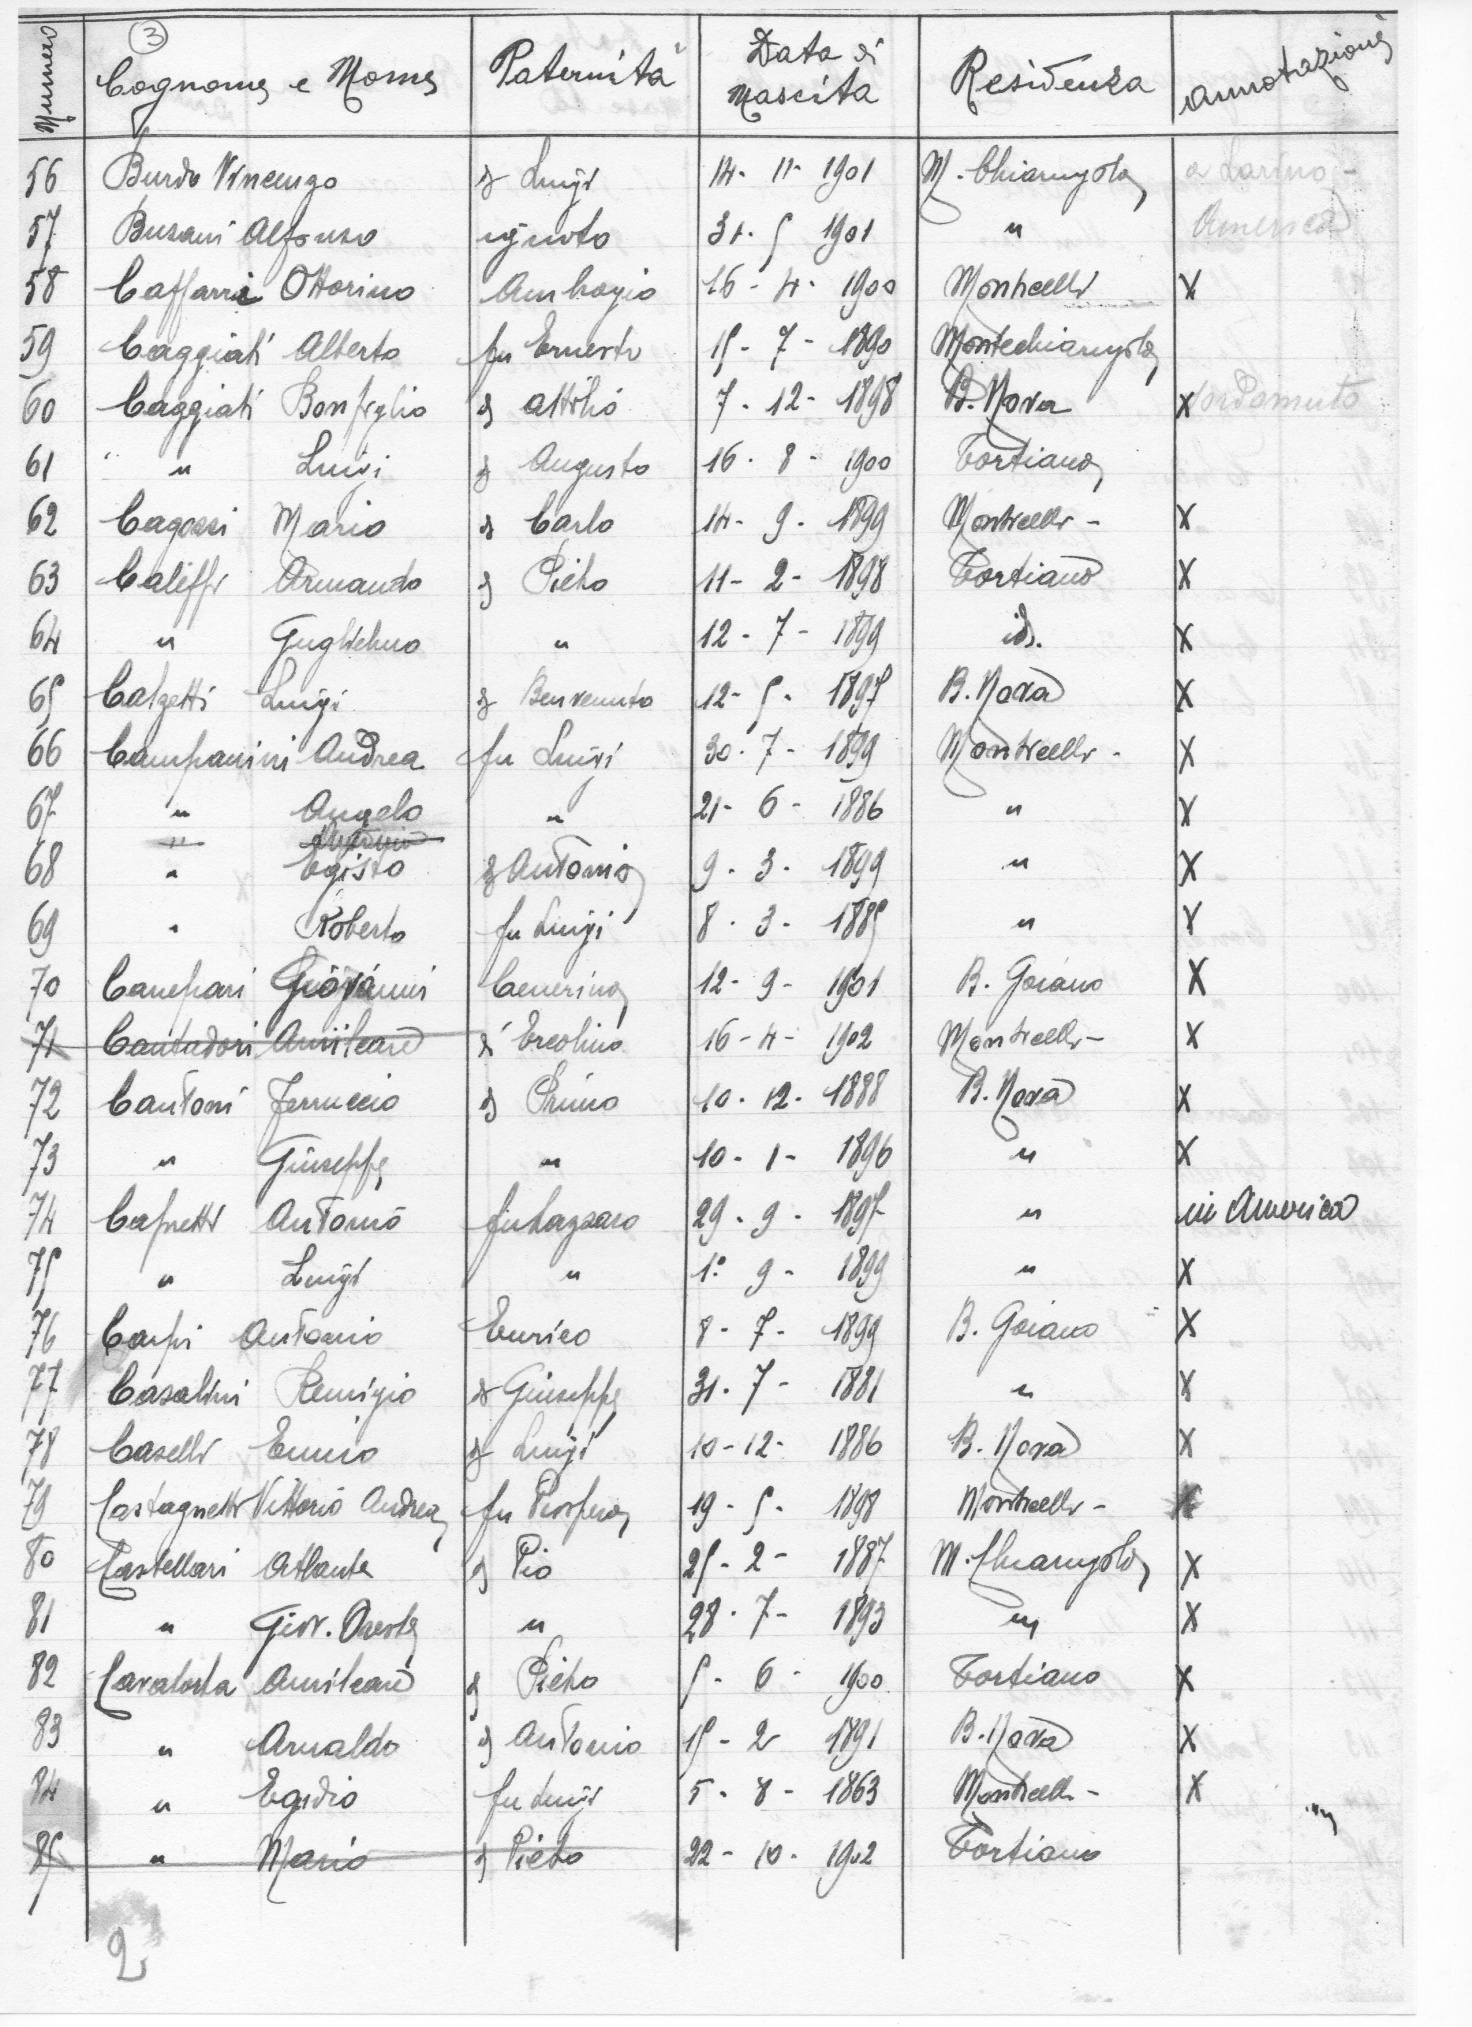 ③
Numero Cognome e Nome Paternità Data di Nascita Residenza Annotazioni
56 Burdo Vincenzo di Luigi 14- 11- 1901 M. Chiarugolo a Larino -
57 Busani Alfonso ignoto 31. 5 1901 " America
58 Caffarri Ottorino Ambrogio 16 - 4- 1900 Monticelli X
59 Caggiati Alberto fu Ernesto 15 - 7 - 1890 Montechiarugolo
60 Caggiati Bonfiglio di Attilio 7 - 12 - 1898 B. Nova X sordomuto
61 " Luigi di Augusto 16 - 8 - 1900 Tortiano
62 Cagossi Mario di Carlo 14- 9- 1899 Monticelli - X
63 Caleffi Armando di Pietro 11- 2- 1898 Tortiano X
64 " Guglielmo " 12 - 7 - 1899 id. X
65 Calzetti Luigi di Benvenuto 12- 5- 1897 B. Nova X
66 Campanini Andrea fu Luigi 30. 7 - 1899 Monticelli - X
67 " Angelo " 21- 6 - 1886 " X
" Antonio
68 " Egisto di Antonio 9 - 3 - 1899 " X
69 " Roberto fu Luigi 8 - 3 - 1885 " X
70 Canepari Giovanni Cenerino 12- 9- 1901 B. Goiano X
71 Cantadori Amilcare di Ercolino 16 - 4- 1902 Monticelli - X
72 Cantoni Ferruccio di Primo 10 - 12- 1888 B. Nova X
73 " Giuseppe " 10 - 1 - 1896 " X
74 Capretti Antonio fu Lazzaro 29 - 9 - 1897 " in America
75 " Luigi " 1° 9 - 1899 " X
76 Carpi Antonio Enrico 8 - 7 - 1899 B. Goiano X
77 Casalini Remigio di Giuseppe 31. 7 - 1881 " X
78 Caselli Ennio di Luigi 10 - 12 - 1886 B. Nova X
79 Castagnetti Vittorio Andrea fu Prospero 19 - 5 - 1898 Monticelli -
80 Castellari Atlante di Pio 25 - 2 - 1887 M. Chiarugolo X
81 " Giov. Oreste " 28 - 7 - 1893 " X
82 Cavatorta Amilcare di Pietro 5 - 6 - 1900 Tortiano X
83 " Arnaldo di Antonio 15 - 2 1891 B. Nova X
84 " Egidio fu Luigi 5 - 8 - 1863 Monticelli - X
85 " Mario di Pietro 22 - 10 - 1902 Tortiano
2